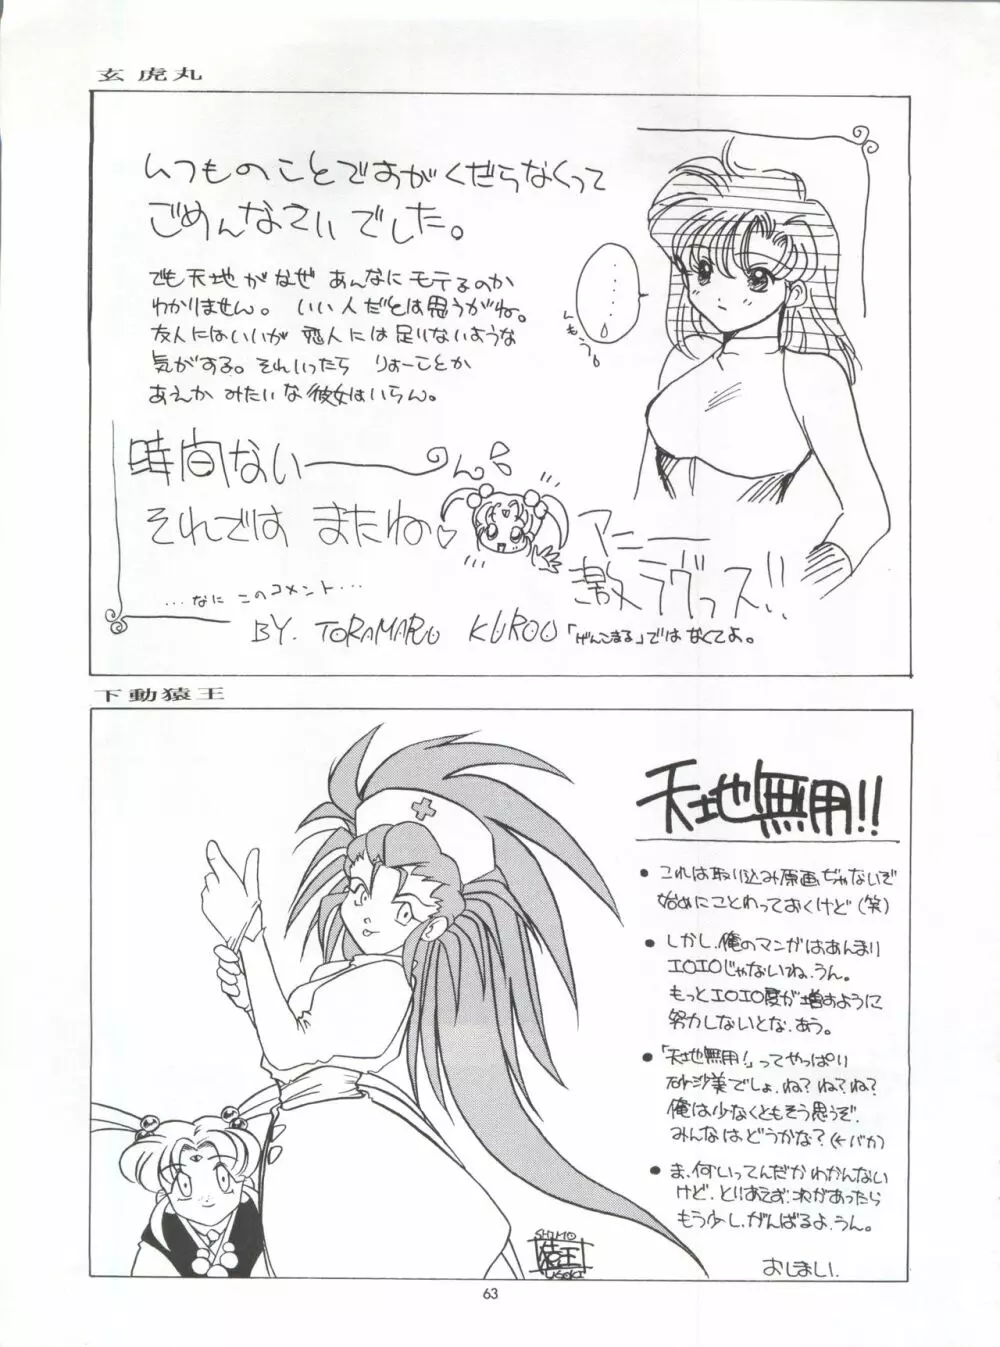 玄虎丸
いつものことですがくだらなくって
ごめんなさいでした。
でも天地がなぜ あんなにモテるのか
わかりません。 いい人だとは思うがね。
友人にはいいが 恋人には足りないような
気がする。それいったら りょーことか
あえか みたいな彼女はいらん。
時間ないーーん
それでは またね
くもぅ
アニー
激ラヴっス!!
...なに このコメント...
BY. TORAMARU KUROU 「げんこまる」ではなくてよ。
下動猿王
天地無用!!
• これは取り込み原画ぢゃないぞ
始めにことわっておくけど(笑)
• しかし、俺のマンガはあんまり
エロエロじゃないね、うん。
もっとエロエロ度が増すように
努力しないとな、あう。
• 「天地無用!」ってやっぱり
砂沙美でしょ、ね?ね?ね?
俺は少なくともそう思うぞ。
みんなはどうかな?(←バカ)
• ま、何いってんだかわかんない
けど、とりあえず、次があったら
もう少し、がんばるよ、うん。
おしまい。
SHIMO
猿王
63